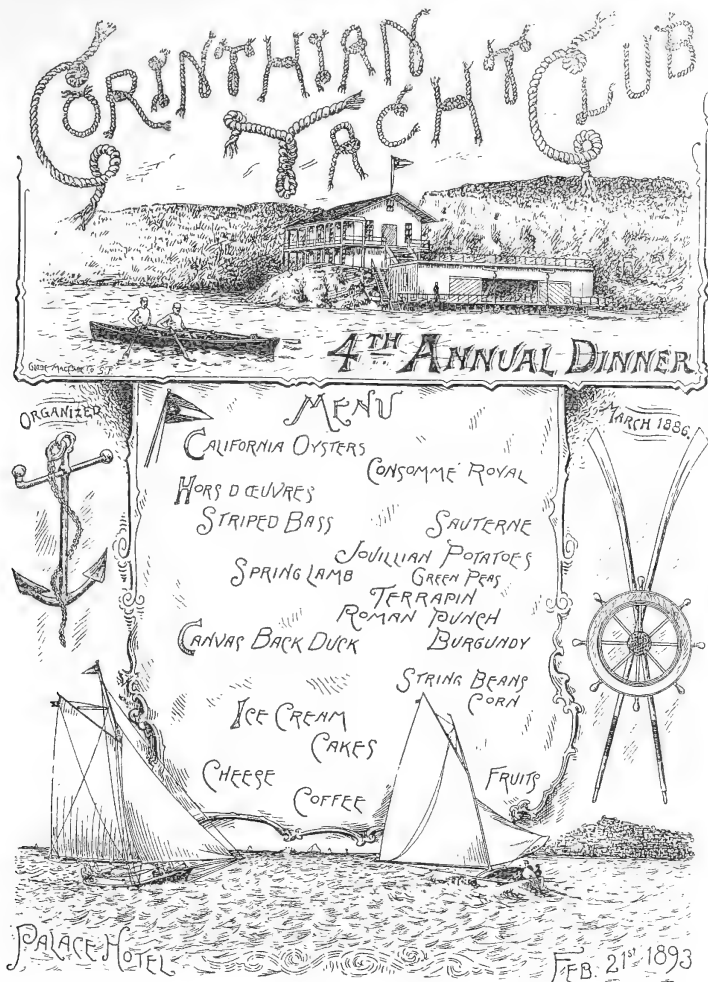 CORINTHIAN
YACHT CLUB
4TH ANNUAL DINNER
ORGANIZED
MARCH 1886
MENU
CALIFORNIA OYSTERS
CONSOMMÉ ROYAL
HORS D ŒUVRES
STRIPED BASS SAUTERNE
JOUILLIAN POTATOES
SPRING LAMB GREEN PEAS
TERRAPIN
ROMAN PUNCH
CANVAS BACK DUCK BURGUNDY
STRING BEANS
CORN
ICE CREAM
CAKES
CHEESE FRUITS
COFFEE
PALACE HOTEL
FEB. 21ST 1893